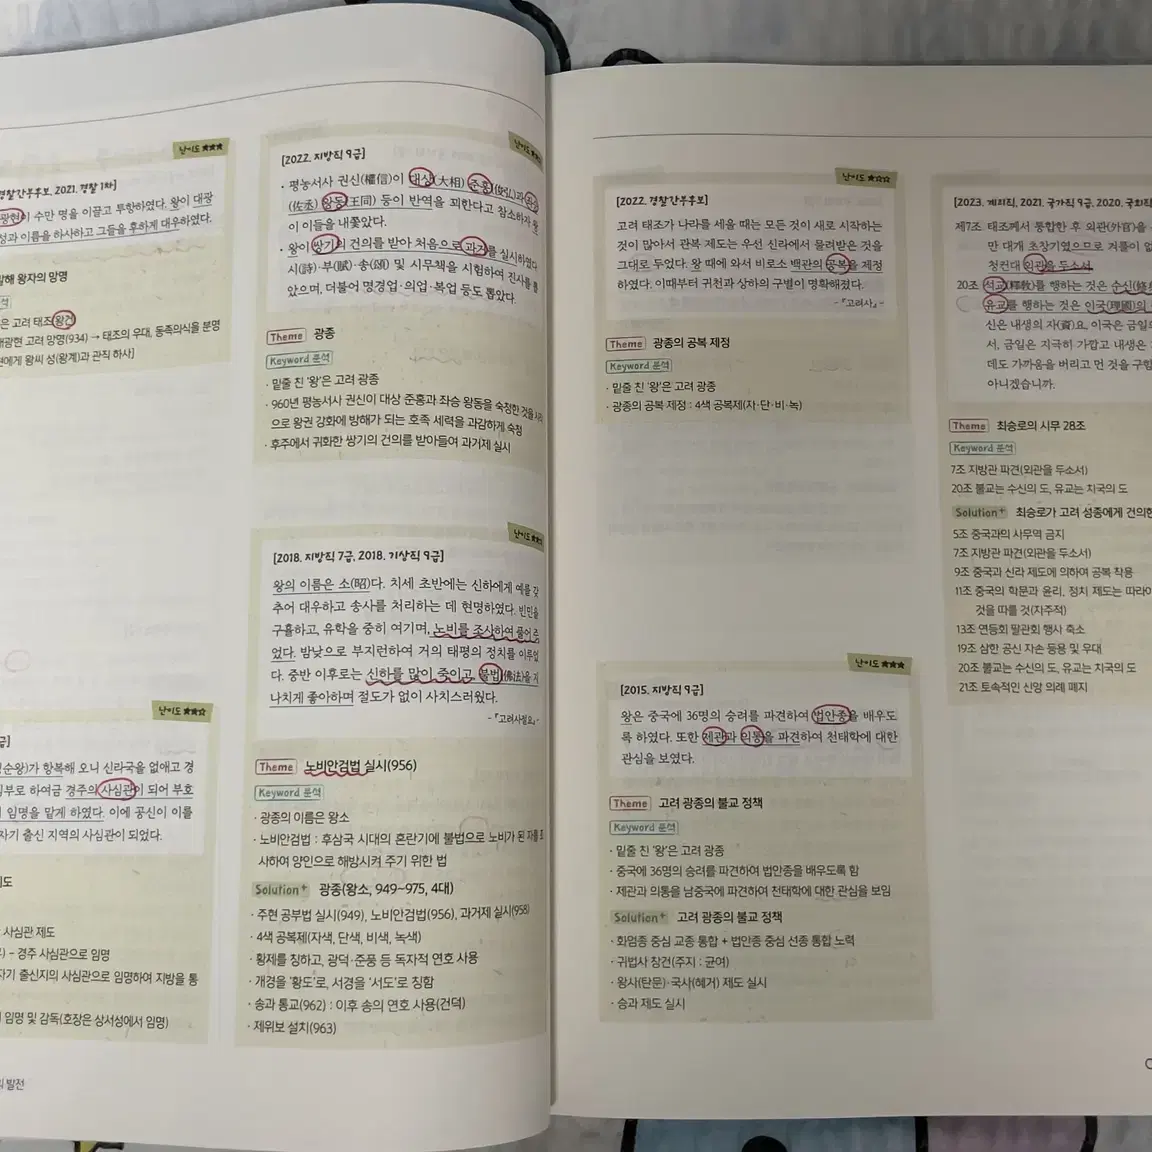 난이도 ★★★
경찰간부후보, 2021. 경찰 1차]
광현이 수만 명을 이끌고 투항하였다. 왕이 대광
성과 이름을 하사하고 그들을 후하게 대우하였다.
발해 왕자의 망명
은 고려 태조 왕건
대광현 고려 망명(934) → 태조의 우대, 동족의식을 분명
현에게 왕씨 성(왕계)과 관직 하사]
난이도 ★★☆
급]
순왕)가 항복해 오니 신라국을 없애고 경
부로 하여금 경주의 사심관이 되어 부호
임명을 맡게 하였다. 이에 공신이 이를
자기 출신 지역의 사심관이 되었다.
도
사심관 제도
) - 경주 사심관으로 임명
자기 출신지의 사심관으로 임명하여 지방을 통
임명 및 감독(호장은 상서성에서 임명)
의 발전
난이도
[2022. 지방직 9급]
• 평농서사 권신(權信)이 대상(大相) 준홍(俊弘)과 좌승
(佐丞) 왕동(王同) 등이 반역을 꾀한다고 참소하자 왕
이 이들을 내쫓았다.
• 왕이 쌍기의 건의를 받아 처음으로 과거를 실시하였다.
시(詩)·부(賦)·송(頌) 및 시무책을 시험하여 진사를 뽑
았으며, 더불어 명경업·의업·복업 등도 뽑았다.
Theme 광종
Keyword 분석
· 밑줄 친 '왕'은 고려 광종
· 960년 평농서사 권신이 대상 준홍과 좌승 왕동을 숙청한 것을 시작
으로 왕권 강화에 방해가 되는 호족 세력을 과감하게 숙청
· 후주에서 귀화한 쌍기의 건의를 받아들여 과거제 실시
난이도
[2018. 지방직 7급, 2018. 기상직 9급]
왕의 이름은 소(昭)다. 치세 초반에는 신하에게 예를 갖
추어 대우하고 송사를 처리하는 데 현명하였다. 빈민을
구휼하고, 유학을 중히 여기며, 노비를 조사하여 풀어 주
었다. 밤낮으로 부지런하여 거의 태평의 정치를 이루었
다. 중반 이후로는 신하를 많이 죽이고, 불법(佛法)을 지
나치게 좋아하며 절도가 없이 사치스러웠다.
- 『고려사절요』 -
Theme 노비안검법 실시(956)
Keyword 분석
· 광종의 이름은 왕소
· 노비안검법 : 후삼국 시대의 혼란기에 불법으로 노비가 된 자를 조
사하여 양인으로 해방시켜 주기 위한 법
Solution+ 광종(왕소, 949~975, 4대)
· 주현 공부법 실시(949), 노비안검법(956), 과거제 실시(958)
· 4색 공복제(자색, 단색, 비색, 녹색)
· 황제를 칭하고, 광덕·준풍 등 독자적 연호 사용
· 개경을 '황도'로, 서경을 '서도'로 칭함
· 송과 통교(962) : 이후 송의 연호 사용(건덕)
· 제위보 설치(963)
난이도 ★☆☆
[2022. 경찰간부후보]
고려 태조가 나라를 세울 때는 모든 것이 새로 시작하는
것이 많아서 관복 제도는 우선 신라에서 물려받은 것을
그대로 두었다. 왕 때에 와서 비로소 백관의 공복을 제정
하였다. 이때부터 귀천과 상하의 구별이 명확해졌다.
- 『고려사』 -
Theme 광종의 공복 제정
Keyword 분석
· 밑줄 친 '왕'은 고려 광종
· 광종의 공복 제정 : 4색 공복제(자·단·비·녹)
난이도 ★★★
[2015. 지방직 9급]
왕은 중국에 36명의 승려를 파견하여 법안종을 배우도
록 하였다. 또한 제관과 의통을 파견하여 천태학에 대한
관심을 보였다.
Theme 고려 광종의 불교 정책
Keyword 분석
· 밑줄 친 '왕'은 고려 광종
· 중국에 36명의 승려를 파견하여 법안종을 배우도록 함
· 제관과 의통을 남중국에 파견하여 천태학에 대한 관심을 보임
Solution+ 고려 광종의 불교 정책
· 화엄종 중심 교종 통합 + 법안종 중심 선종 통합 노력
· 귀법사 창건(주지 : 균여)
· 왕사(탄문)·국사(혜거) 제도 실시
· 승과 제도 실시
[2023. 계리직, 2021. 국가직 9급, 2020. 국회직
제7조 태조께서 통합한 후 외관(外官)을
만 대개 초창기였으므로 겨를이 없
청컨대 외관을 두소서.
20조 석교(釋敎)를 행하는 것은 수신(修身
유교를 행하는 것은 이국(理國)의
신은 내생의 자(資)요, 이국은 금일의
서, 금일은 지극히 가깝고 내생은
데도 가까움을 버리고 먼 것을 구함
아니겠습니까.
Theme 최승로의 시무 28조
Keyword 분석
7조 지방관 파견(외관을 두소서)
20조 불교는 수신의 도, 유교는 치국의 도
Solution+ 최승로가 고려 성종에게 건의한
5조 중국과의 사무역 금지
7조 지방관 파견(외관을 두소서)
9조 중국과 신라 제도에 의하여 공복 착용
11조 중국의 학문과 윤리, 정치 제도는 따라야
것을 따를 것(자주적)
13조 연등회 팔관회 행사 축소
19조 삼한 공신 자손 등용 및 우대
20조 불교는 수신의 도, 유교는 치국의 도
21조 토속적인 신앙 의례 폐지